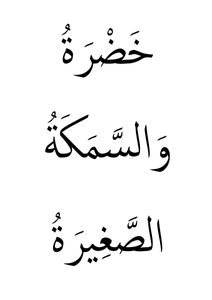 خَضْرَةُ
وَالسَّمَكَةُ
الصَّغِيرَةُ